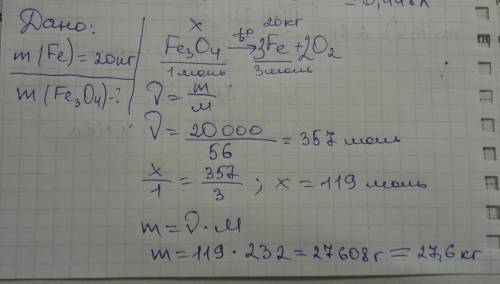 = 0,448л
Дано:
m(Fe)=20кг
m(Fe₃O₄)-?
x 20кг
Fe₃O₄ →t° 3Fe+2O₂
1моль 3моль
ν = m/м
ν = 20000/56 = 357 моль
x/1 = 357/3 ; x = 119 моль
m = ν · М
m = 119 · 232 = 27608г = 27,6 кг